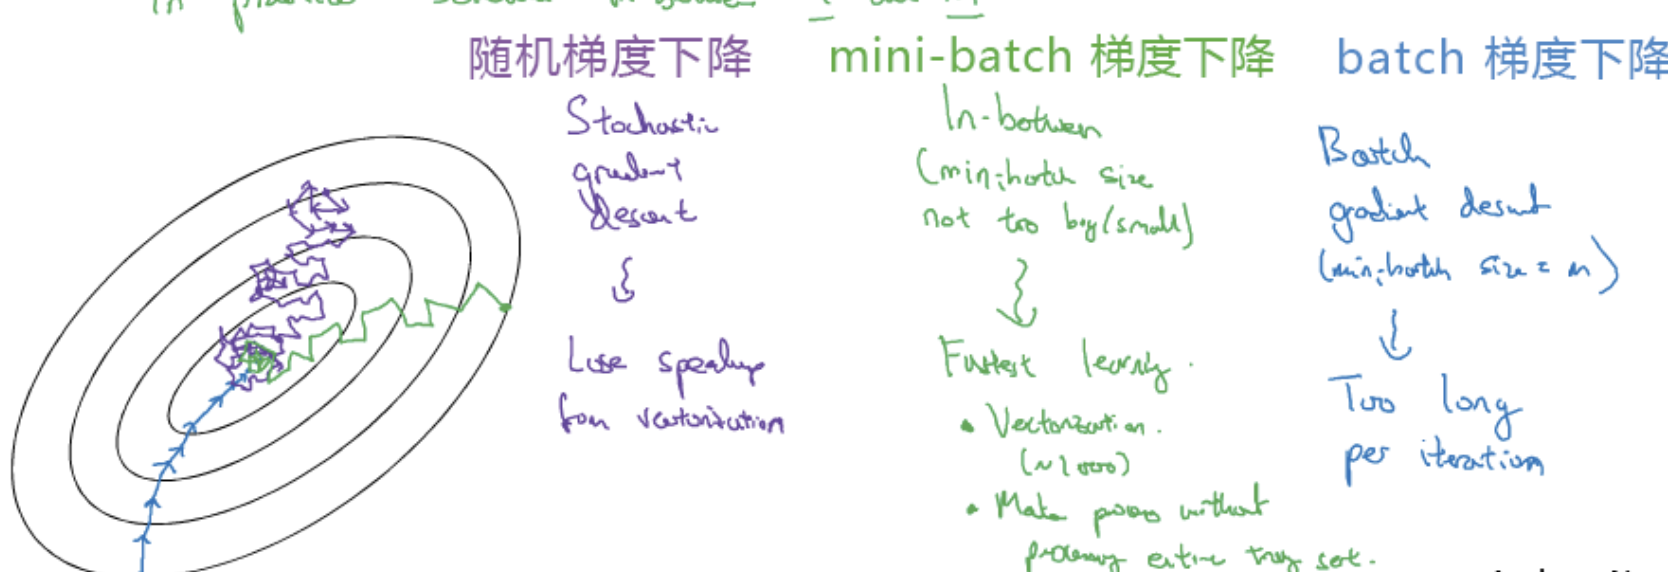 In practice
随机梯度下降
mini-batch 梯度下降
batch 梯度下降
Stochastic
gradient
descent
Lose speedup
from vectorization
In-between
(mini-batch size
not too big/small)
Fastest learning.
• Vectorization.
(~1000)
• Make progress without
processing entire training set.
Batch
gradient descent
(mini-batch size = m)
Too long
per iteration